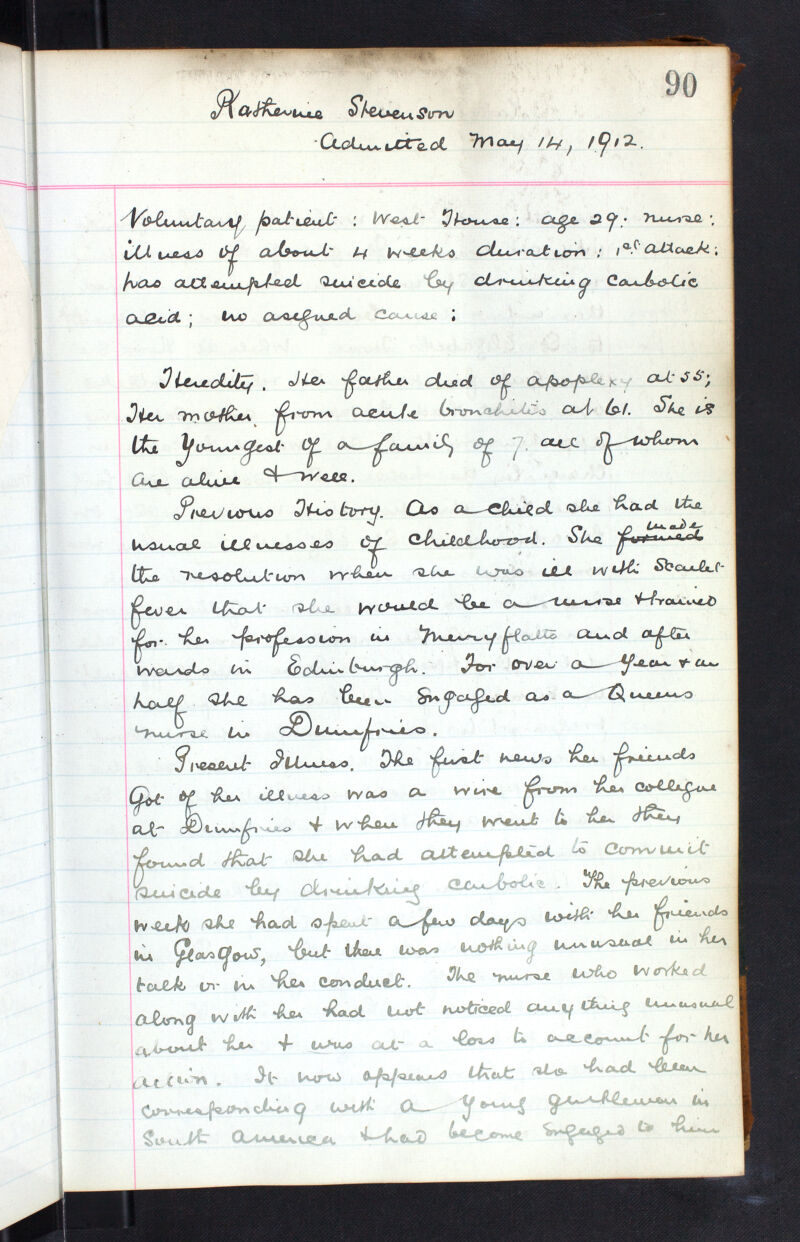 90
Katherine Stevenson
Admitted May 14, 1912.
Voluntary patient : West House : age 29 : nurse :
illness of about 4 weeks duration : 1st attack :
has attempted suicide by drinking carbolic
acid ; no assigned cause :
Heredity. Her father died of apoplexy at 55;
Her mother, from acute bronchitis at 61. She is
the Youngest of a family of 7. all of whom
are alive & well.
Previous History. As a child she had the
usual illnesses of childhood. She formed made
the resolution when she was ill with Scarlet
fever that she would be a nurse & trained
for her profession in Merryflatts and after
wards in Edinburgh. For over a year & an
half she has been Engaged as a Queens
nurse in Dumfries.
Present Illness. The first news her friends
Got of her illness was a wire from her collegue
at Dumfries & when they went to her they
found that she had attempted to commit
suicide by drinking carbolic. The previous
week she had spent a few days with her friends
in Glasgow, but there was nothing unusual in her
talk or in her conduct. The nurse who worked
along with her had not noticed anything unusual
about her & was at a loss to account for her
action. It now appears that she had been
corresponding with a young gentleman in
South America & had become Engaged to him